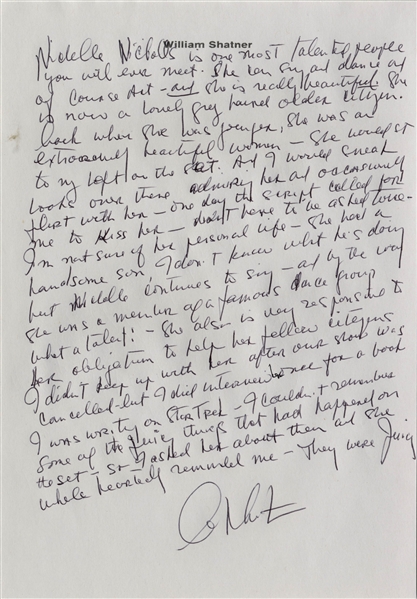 William Shatner
Nichelle Nicholls is one most talented people
you will ever meet. She can sing ad dance ad
of course Act - ad she is really beautiful. She
is now a lovely grey haired older citizen.
back when she was younger, she was an
extraordinarily beautiful woman - She worked at
to my left on the set. And I would sneak
looks over there admiring her ad occasionally
flirt with her - one day the script called for
me to kiss her - didn't have to be asked twice.
I'm not sure of her personal life - She had a
handsome son, I don't know what he's doing
but Nichelle continues to sing - ad by the way
she was a member of a famous dance group
what a talent! - She also is very responsive to
her obligation to help her fellow citizens
I didn't keep up with her after our show was
cancelled - but I did interview her once for a book
I was writing on Star Trek - I couldn't remember
some of the juicy things that had happened on
the set - so I asked her about them ad she
whole heartedly reminded me - They were Juicy